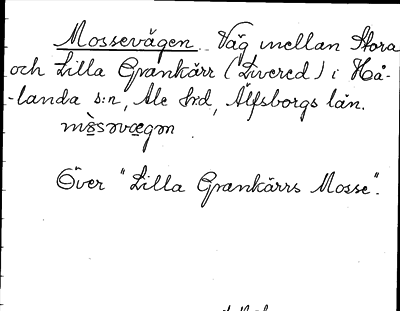 Mossevägen Väg mellan Stora
och Lilla Grankärr (Livered) i Hå-
-landa s:n, Ale hrd, Älfsborgs län.
mòsəvægən
Över "Lilla Grankärrs Mosse".